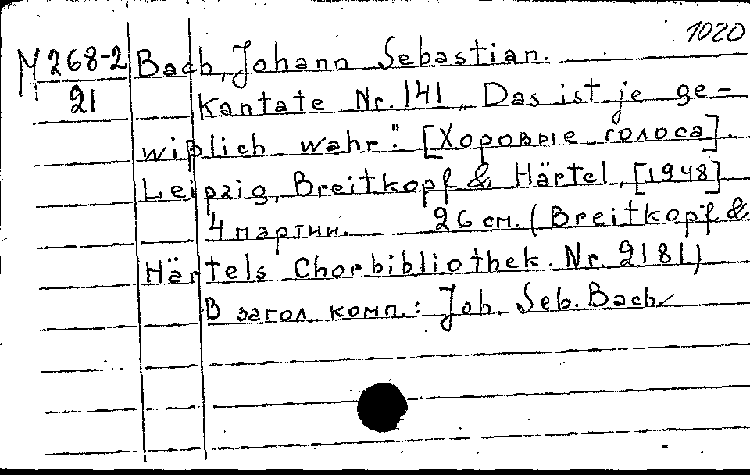 1020
М 268-2 Bach, Johann Sebastian.
21 Kantate Nr. 141 „Das ist je ge-
wißlich wahr". [Хоровые голоса].
Leipzig, Breitkopf & Härtel, [1948]
4 партии. 26 см. (Breitkopf &
Härtels Chorbibliothek. Nr. 2181)
В загол. комп.: Joh. Seb. Bach